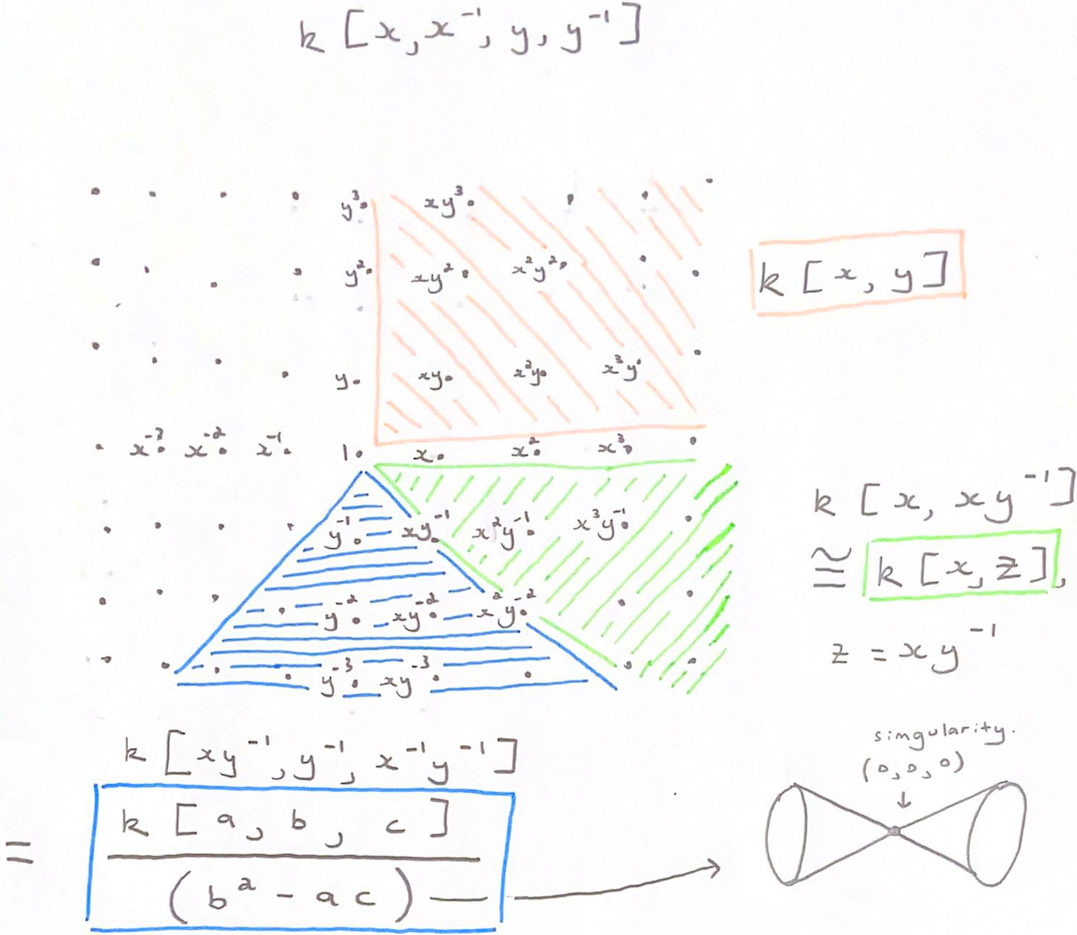 k [x, x⁻¹, y, y⁻¹]
y³ xy³
y² xy² x²y²
k [x, y]
y xy x²y x³y
x⁻³ x⁻² x⁻¹ 1 x x² x³
y⁻¹ xy⁻¹ x²y⁻¹ x³y⁻¹
k [x, xy⁻¹]
≅ k [x, z],
z = xy⁻¹
y⁻² xy⁻² x²y⁻²
y⁻³ xy⁻³
k [xy⁻¹, y⁻¹, x⁻¹y⁻¹]
= k [a, b, c]
(b² - ac)
singularity.
(0, 0, 0)